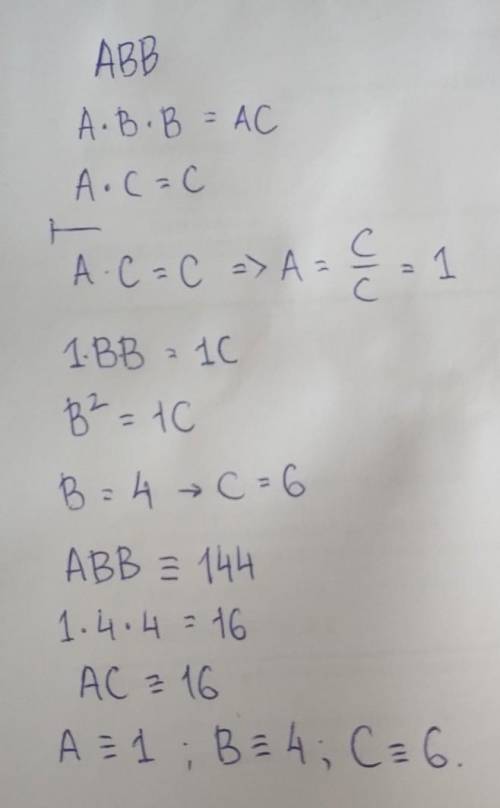 ABB
A·B·B = AC
A·C = C
A·C = C => A = C/C = 1
1·BB = 1C
B² = 1C
B = 4 → C = 6
ABB ≡ 144
1·4·4 = 16
AC ≡ 16
A ≡ 1 ; B ≡ 4 ; C ≡ 6.